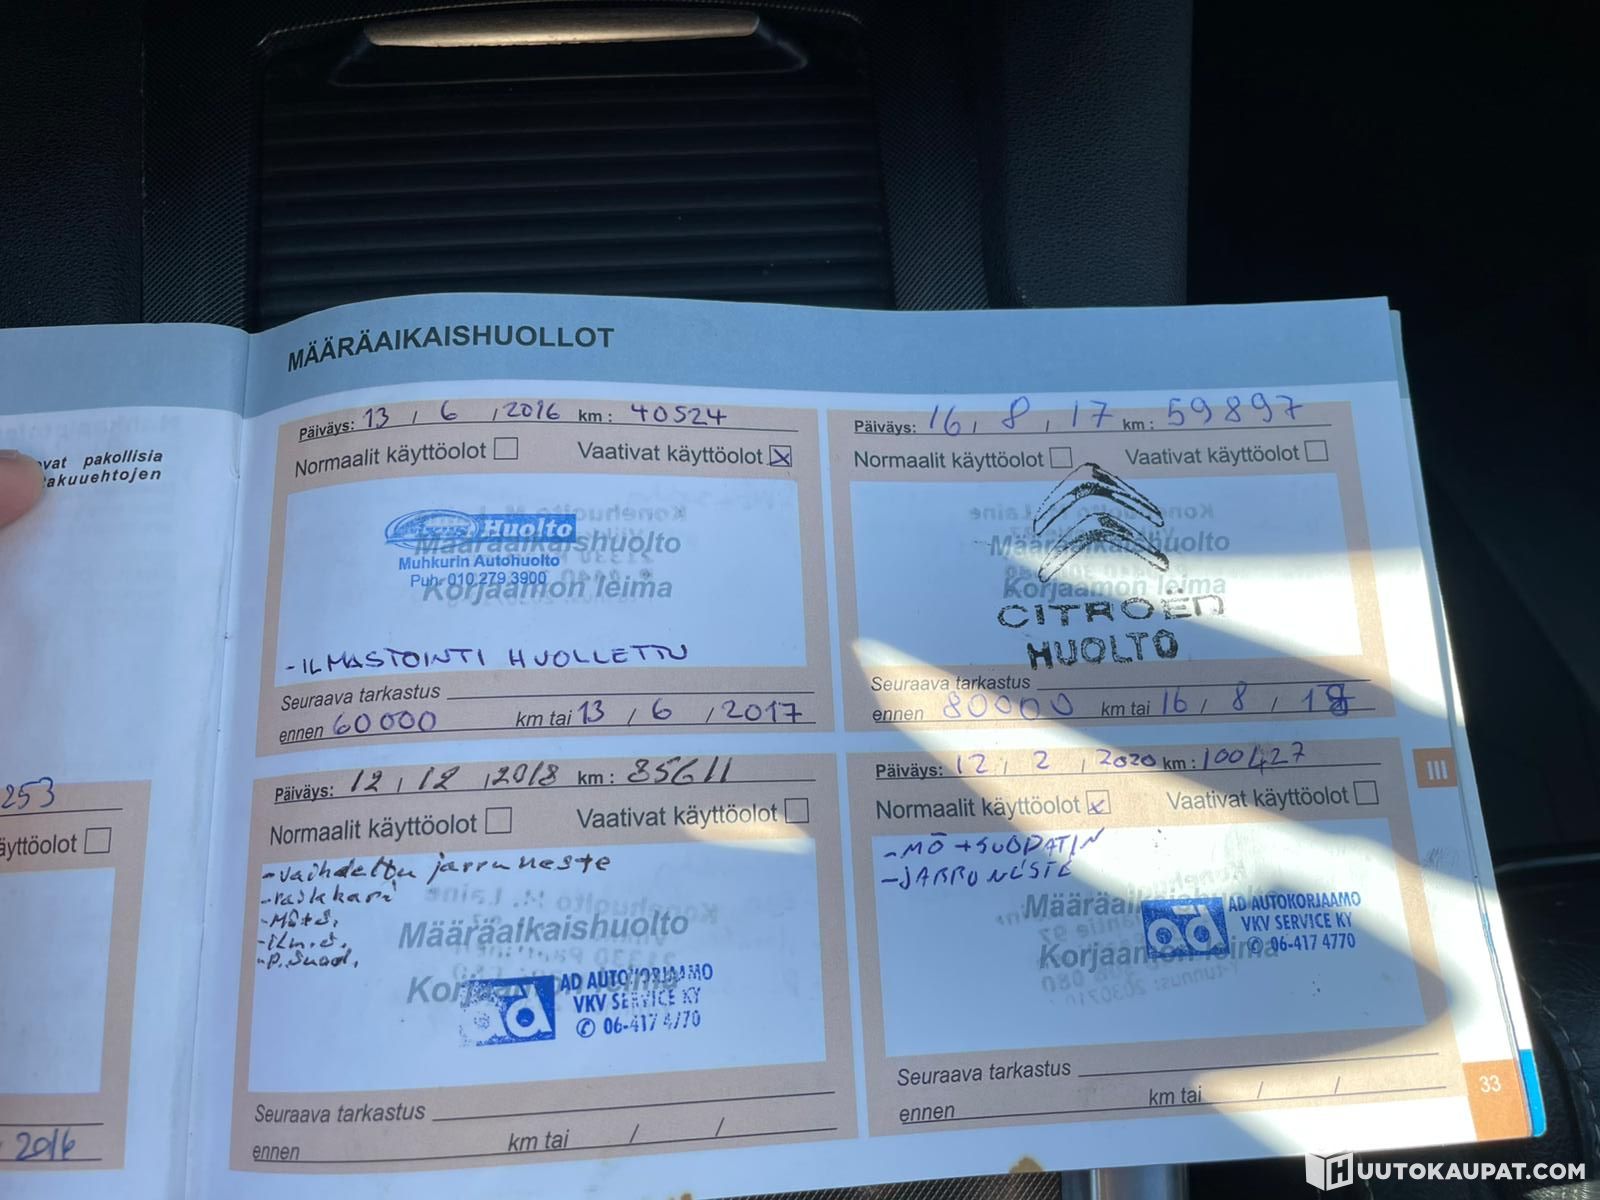 MÄÄRÄAIKAISHUOLLOT
vat pakollisia
akuuehtojen
253
äyttöolot
2016
Päiväys: 13 / 6 / 2016 km: 40524
Normaalit käyttöolot Vaativat käyttöolot x
Huolto
Määräaikaishuolto
Muhkurin Autohuolto
Puh. 010 279 3900
Korjaamon leima
- ILMASTOINTI HUOLLETTU
Seuraava tarkastus
ennen 60000 km tai 13 / 6 / 2017
Päiväys: 16 / 8 / 17 km: 59897
Normaalit käyttöolot Vaativat käyttöolot
Määräaikaishuolto
Korjaamon leima
CITROËN
HUOLTO
Seuraava tarkastus
ennen 80000 km tai 16 / 8 / 18
Päiväys: 12 / 12 / 2018 km: 85611
Normaalit käyttöolot Vaativat käyttöolot
- vaihdettu jarruneste
- raikkari
- Mö+S.
- ilm.S.
- P. Suod.
Määräaikaishuolto
Korjaamon leima
ad AD AUTOKORJAAMO
VKV SERVICE KY
06-417 4770
Seuraava tarkastus
ennen km tai / /
Päiväys: 12 / 2 / 2020 km: 100427
Normaalit käyttöolot x Vaativat käyttöolot
- MÖ + SUODATIN
- JARRUNESTE
Määräaikaishuolto
Korjaamon leima
ad AD AUTOKORJAAMO
VKV SERVICE KY
06-417 4770
Seuraava tarkastus
ennen km tai / /
III
33
HUUTOKAUPAT.COM